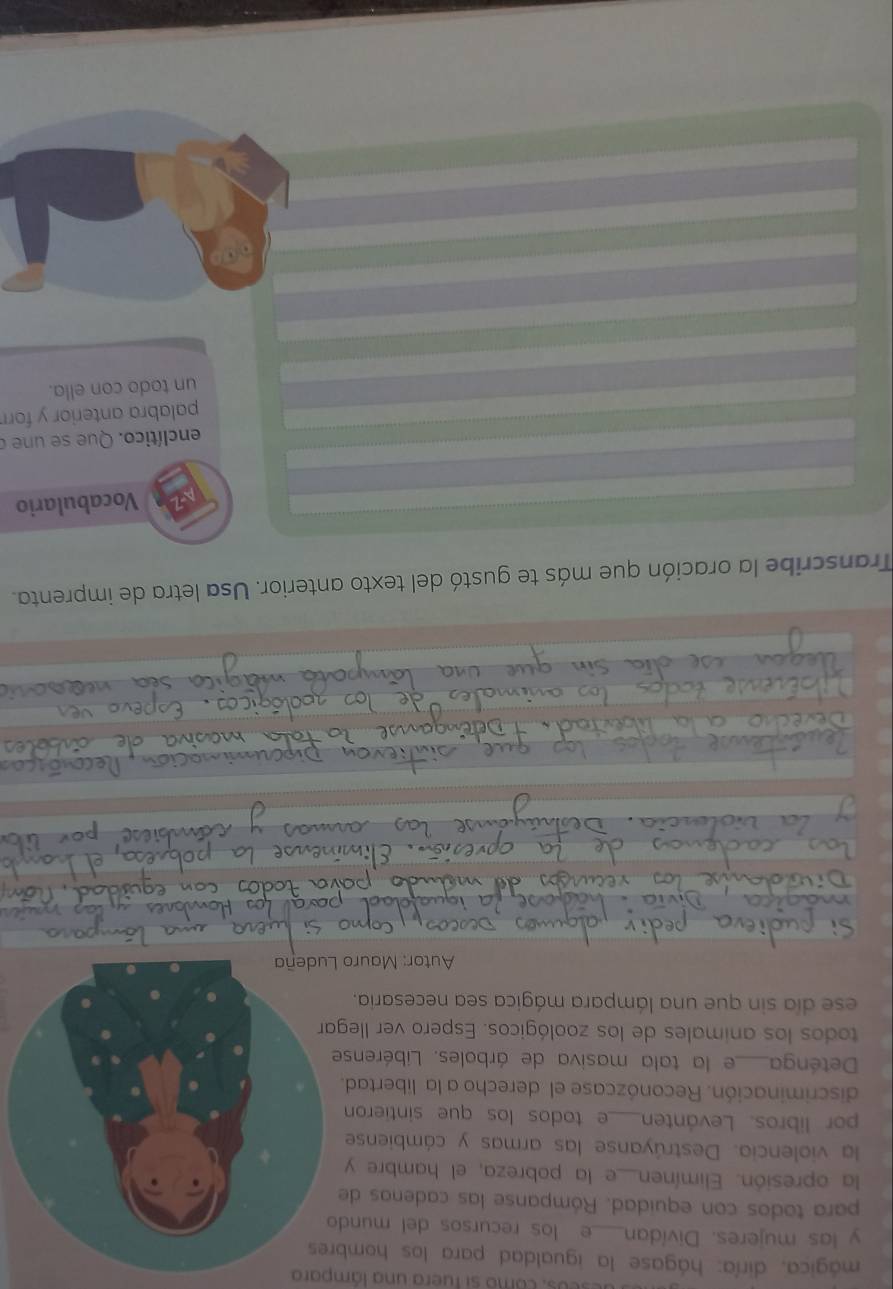 como si fuera una lámpara
mágica, diría: hágase la igualdad para los hombres
y las mujeres. Divídan___e los recursos del mundo
para todos con equidad. Rómpanse las cadenas de
la opresión. Elimínen___e la pobreza, el hambre y
la violencia. Destrúyanse las armas y cámbiense
por libros. Levánten___e todos los que sintieron
discriminación. Reconózcase el derecho a la libertad.
Deténga___e la tala masiva de árboles. Libérense
todos los animales de los zoológicos. Espero ver llegar
ese día sin que una lámpara mágica sea necesaria.
Autor: Mauro Ludeña
Si pudiera pedir algunos Deseos, como si fuera una lámpara
mágica, Diria: hágase la igualdad para los Hombres y las
los recursos del mundo para todos con equidad.
las cadenas de la opresión. Elimínense la pobreza, el
y La violencia. Destrúyanse las armas y cámbiese por
todos los que sintieron Discriminación,
Derecho a la libertad. Deténganse la tala masiva de árboles
Libérense todos los animales de los zoológicos. Espero ver
llegar ese día sin que una lámpara mágica sea
Transcribe la oración que más te gustó del texto anterior. Usa letra de imprenta.
A-Z
Vocabulario
enclítico. Que se une
palabra anterior y for
un todo con ella.